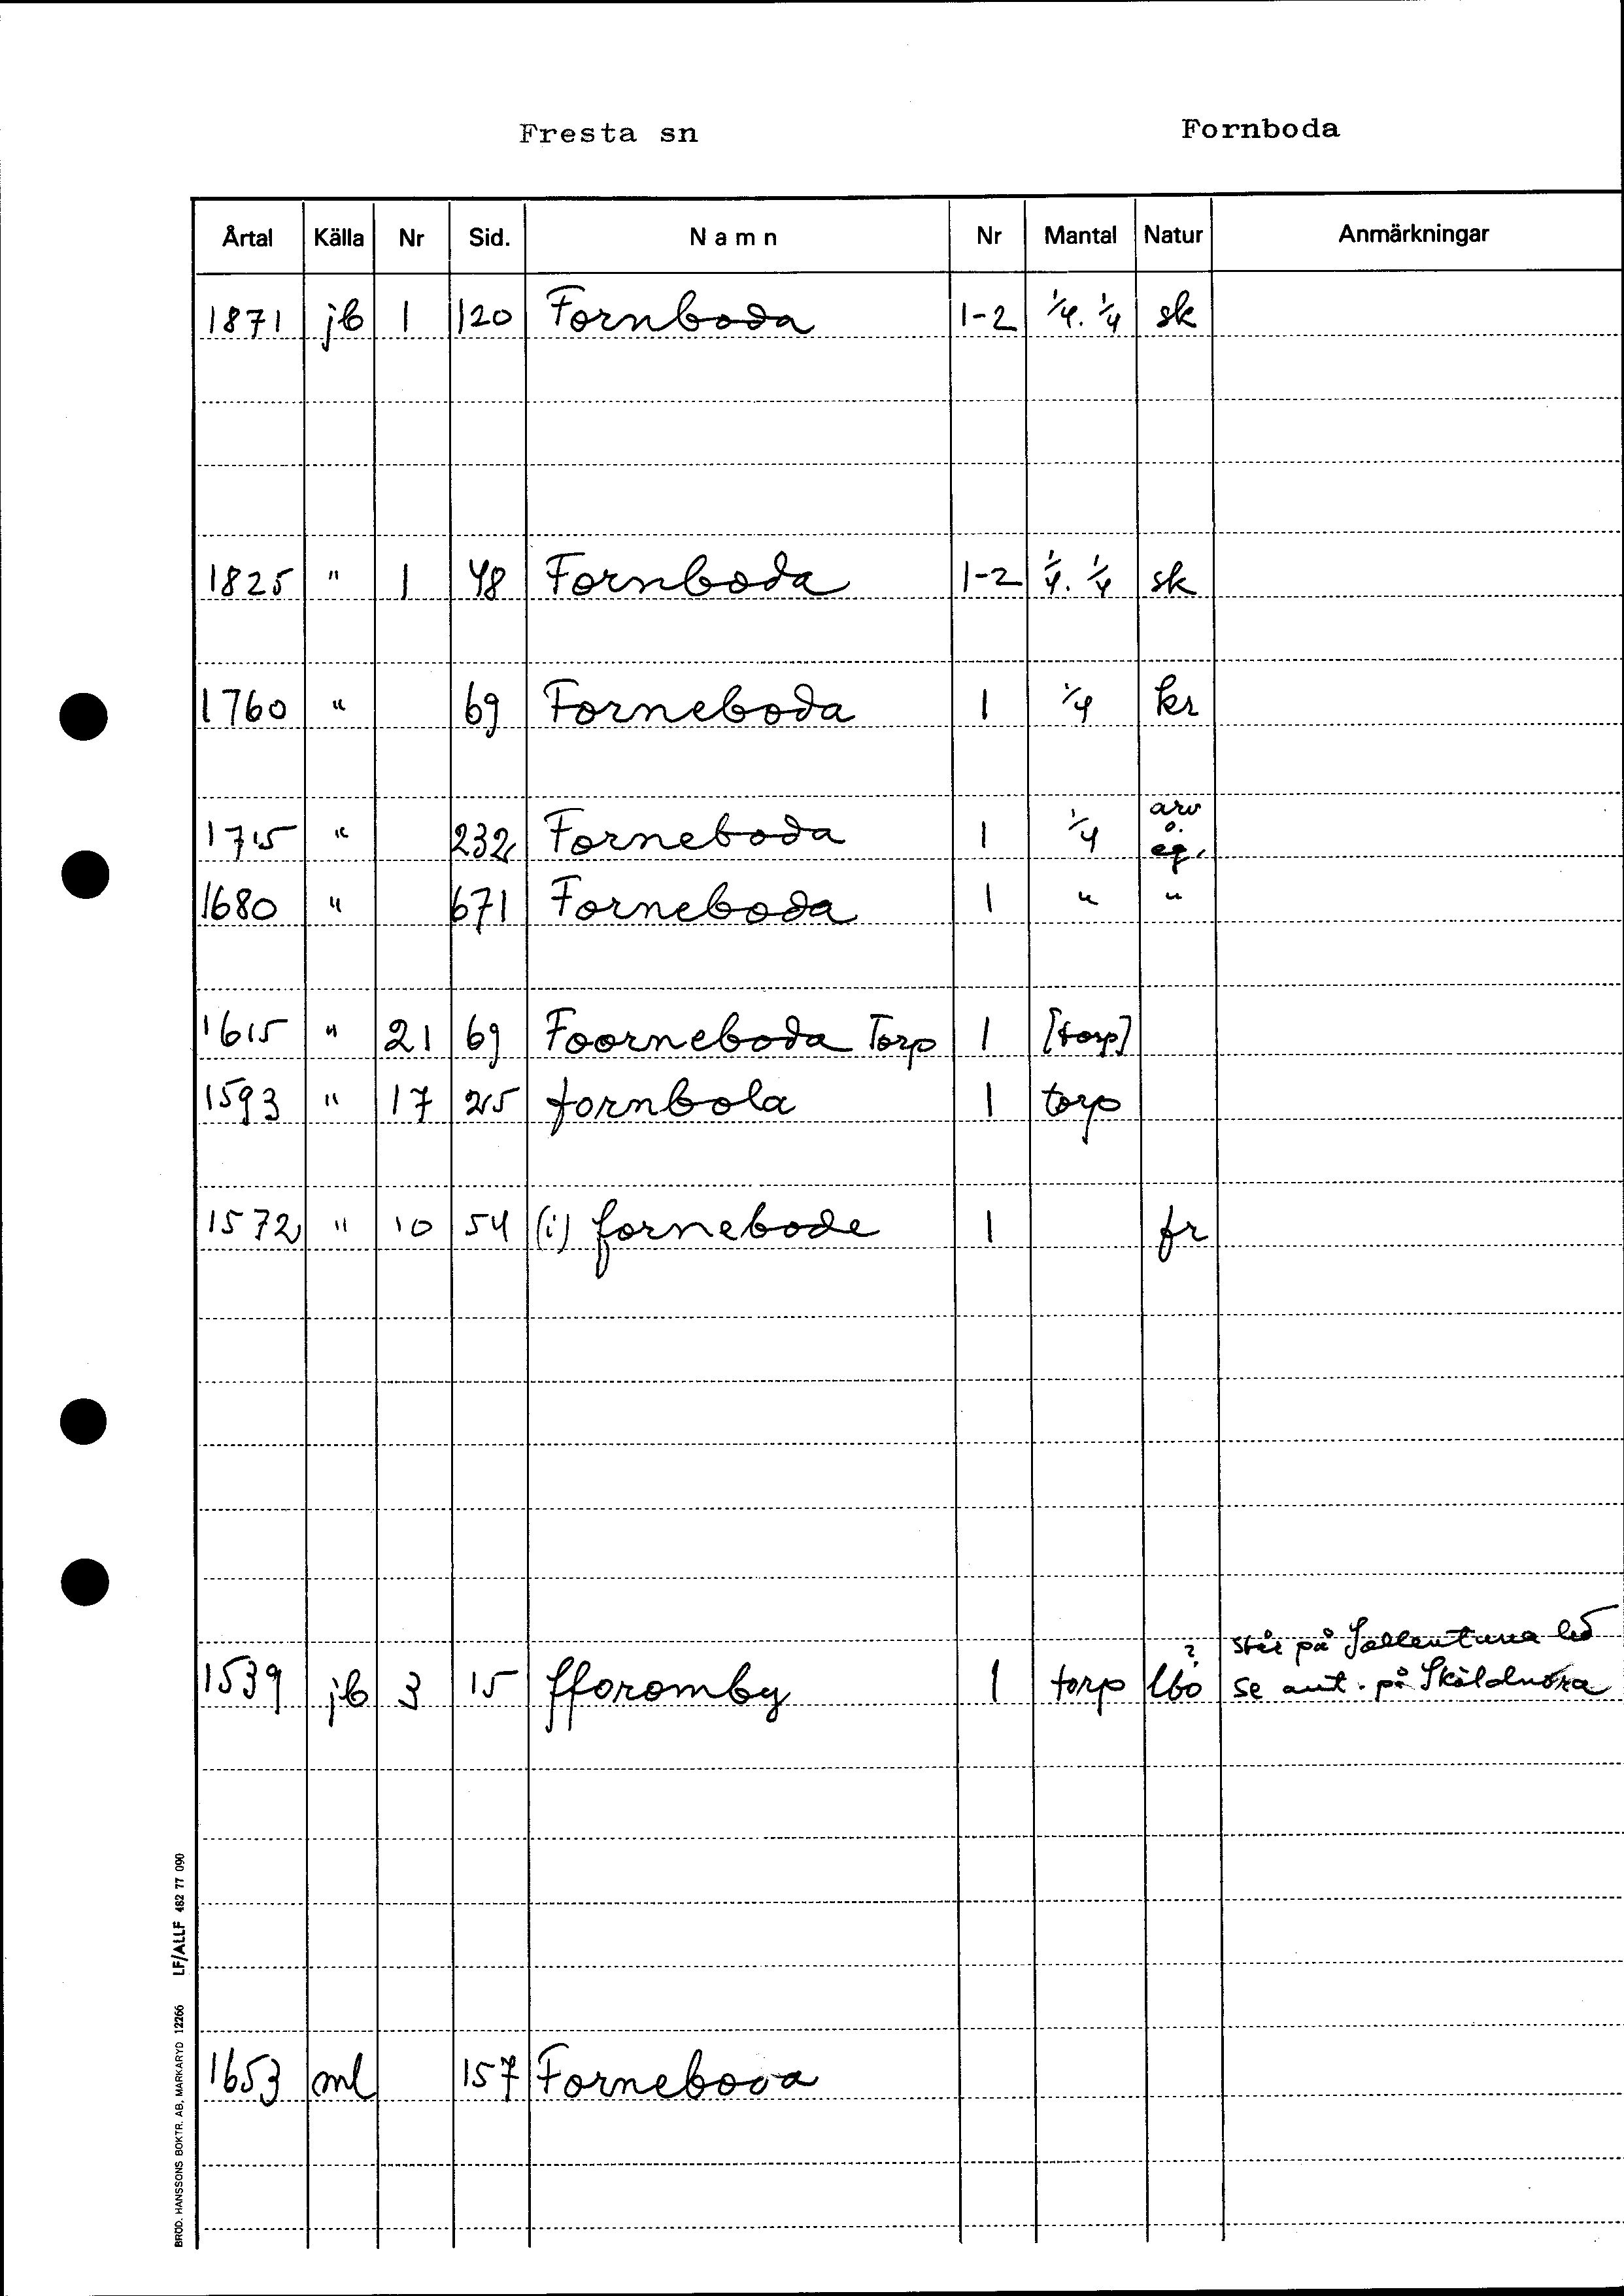 Fresta sn Fornboda
Årtal Källa Nr Sid. Namn Nr Mantal Natur Anmärkningar
1871 jb 1 120 Fornboda 1-2 1/4. 1/4 sk
1825 " 1 48 Fornboda 1-2 1/4. 1/4 sk
1760 " 69 Forneboda 1 1/4 kr
1715 " 232 Forneboda 1 1/4 arv o. eg.
1680 " 671 Forneboda 1 " "
1615 " 21 69 Foorneboda Torp 1 [torp]
1593 " 17 25 fornbola 1 torp
1572 " 10 54 (i) fornebode 1 fr
står på Sollentuna
1539 jb 3 15 fforomby 1 torp ? lbo se ant. på Sköldnora
1653 ml 157 Fornebova
BROD. HANSSONS BOKTR. AB, MARKARYD 12266 LF/ALLF 462 77 090